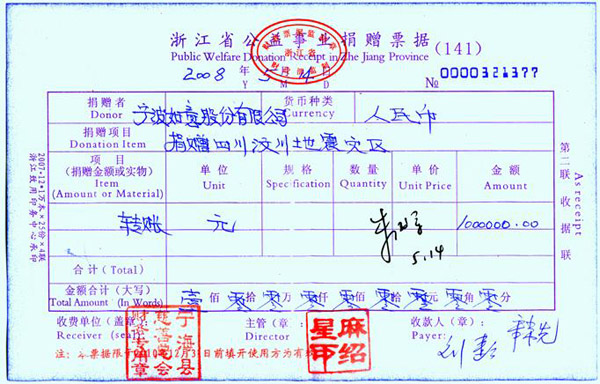 浙江省公益事业捐赠票据 (141)
Public Welfare Donation Receipt in Zhe Jiang Province
2008 年 5 月 14 日 № 0000321377
Y M D
捐赠者 宁波如意股份有限公司 货币种类 人民币
Donor Currency
捐赠项目 捐赠四川汶川地震灾区
Donation Item
项目 单位 规格 数量 单价 金额
(捐赠金额或实物) Unit Specification Quantity Unit Price Amount
Item
(Amount or Material)
转账 元 1000000.00
5.14
合计 (Total)
金额合计 (大写) 壹佰零拾零万零仟零佰零拾零元零角零分
Total Amount (In Words)
收费单位 (盖章): 主管 (章) 收款人 (章):
Receiver (seal): Director Payer:
注: 本票据限于2010年12月31日前填开使用方为有效
宁海县
慈善总会
财务专用章
麻绍
星甲
第二联 收据联
As receipt